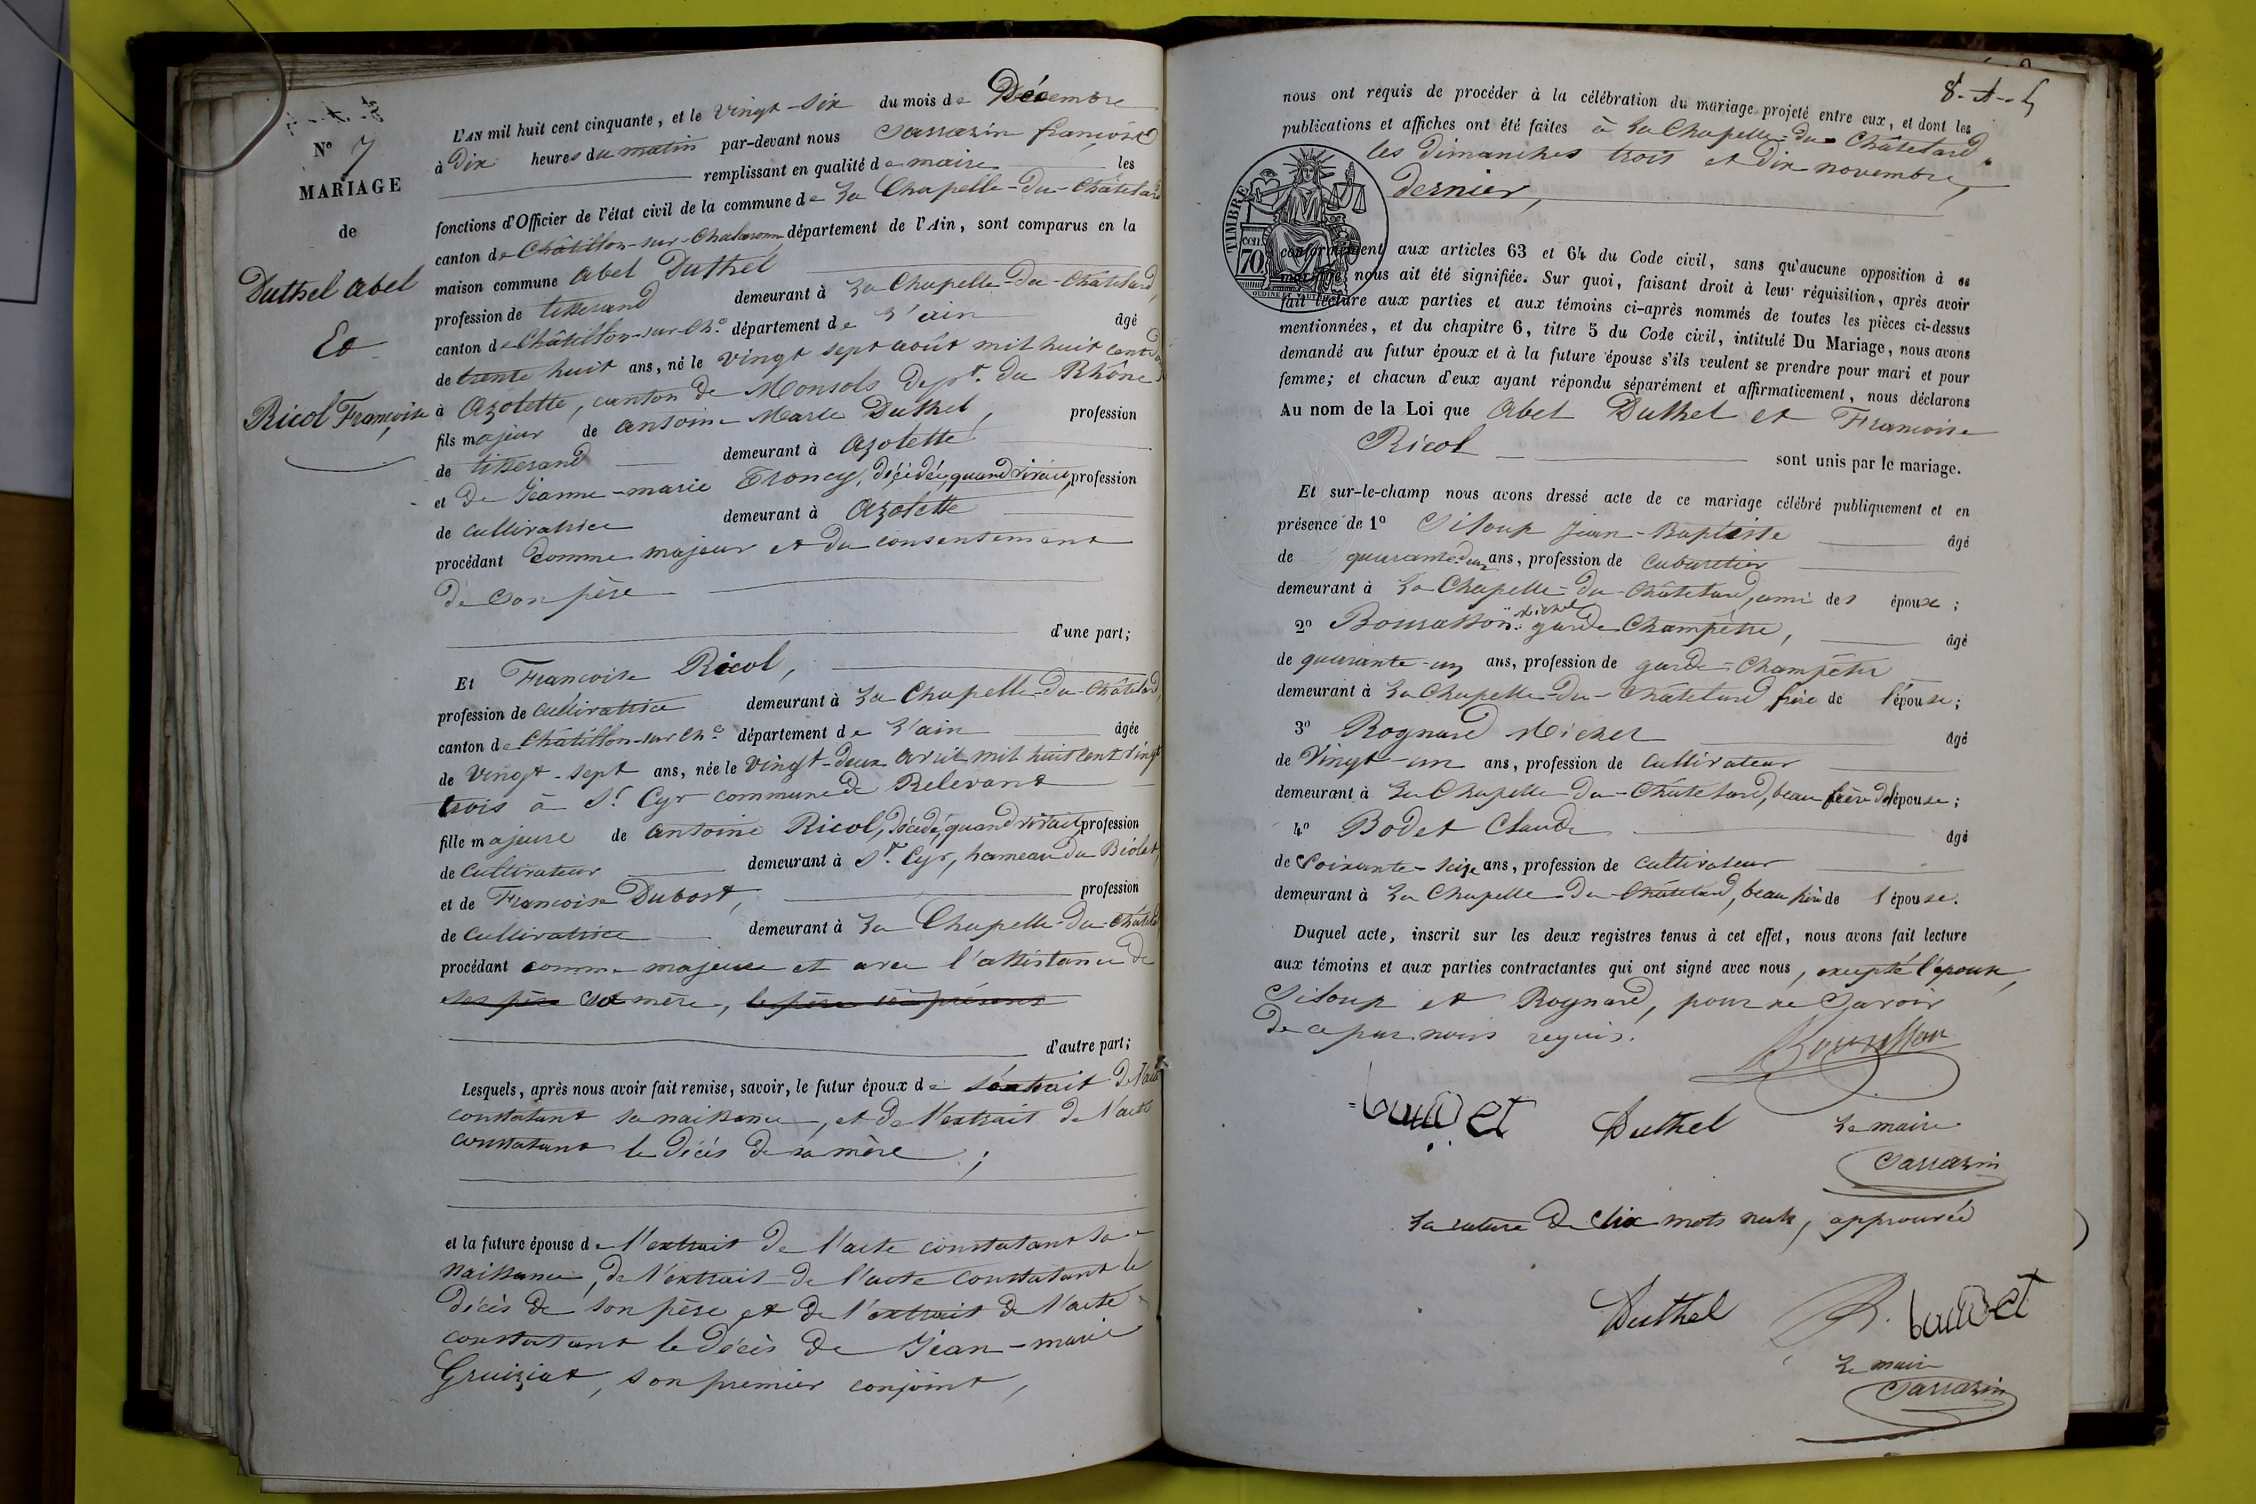 N° 7
MARIAGE
de
Duthel Abel
Et
Ricol Françoise
L'AN mil huit cent cinquante, et le vingt-six du mois de Décembre
à dix heures du matin par-devant nous Sarrazin françois
remplissant en qualité de maire les
fonctions d'Officier de l'état civil de la commune de La Chapelle-du-Châtelard
canton de Châtillon-sur-Chalaronne département de l'Ain, sont comparus en la
maison commune Abel Duthel
profession de tisserand demeurant à La Chapelle-du-Châtelard,
canton de Châtillon-sur-Ch.e département de L'ain âgé
de trente huit ans, né le vingt sept août mil huit cent
à Azolette, canton de Monsols dep.t du Rhône
fils majeur de Antoine Marie Duthel, profession
de tisserand demeurant à Azolette
et de Jeanne-marie Troncy, décédée, quand vivait, profession
de cultivatrice demeurant à Azolette
procédant comme majeur et du consentement
de son père
d'une part;
Et Françoise Ricol,
profession de cultivatrice demeurant à La Chapelle-du-Châtelard,
canton de Châtillon-sur Ch.e département de L'ain âgée
de vingt-sept ans, née le vingt-deux avril mil huit cent vingt
trois à St Cyr commune de Relevant
fille majeure de Antoine Ricol, décédé, quand vivait, profession
de cultivateur demeurant à St. Cyr, hameau du Biolet,
et de Françoise Dubost, profession
de cultivatrice demeurant à La Chapelle-du-Châtelard
procédant comme majeure et avec l'assistance de
ses père sa mère, le père ici présent
d'autre part;
Lesquels, après nous avoir fait remise, savoir, le futur époux de l'extrait de l'acte
constatant sa naissance, et de l'extrait de l'acte
constatant le décès de sa mère;
et la future épouse de l'extrait de l'acte constatant sa
naissance, de l'extrait de l'acte constatant le
décès de son père et de l'extrait de l'acte
constatant le décès de Jean-marie
Gruiziat, son premier conjoint,
nous ont requis de procéder à la célébration du mariage projeté entre eux, et dont les
publications et affiches ont été faites à La Chapelle-du-Châtelard,
les dimanches trois et dix novembre,
dernier,
TIMBRE
70
conformément aux articles 63 et 64 du Code civil, sans qu'aucune opposition à ce
mariage nous ait été signifiée. Sur quoi, faisant droit à leur réquisition, après avoir
fait lecture aux parties et aux témoins ci-après nommés de toutes les pièces ci-dessus
mentionnées, et du chapitre 6, titre 5 du Code civil, intitulé Du Mariage, nous avons
demandé au futur époux et à la future épouse s'ils veulent se prendre pour mari et pour
femme; et chacun d'eux ayant répondu séparément et affirmativement, nous déclarons
Au nom de la Loi que Abel Duthel et Françoise
Ricol sont unis par le mariage.
Et sur-le-champ nous avons dressé acte de ce mariage célébré publiquement et en
présence de 1° Siloup Jean-Baptiste âgé
de quarante-deux ans, profession de cabaretier
demeurant à La Chapelle-du-Châtelard, ami des époux;
2° Bourasson Michel garde Champêtre, âgé
de quarante-un ans, profession de garde-Champêtre
demeurant à La Chapelle-du-Châtelard frère de l'épouse;
3° Rognard Michel âgé
de Vingt-un ans, profession de cultivateur
demeurant à La Chapelle-du-Châtelard, beau frère de l'épouse;
4° Bodet Claude âgé
de soixante-seize ans, profession de cultivateur
demeurant à La Chapelle-du-Châtelard, beau père de l'épouse.
Duquel acte, inscrit sur les deux registres tenus à cet effet, nous avons fait lecture
aux témoins et aux parties contractantes qui ont signé avec nous, excepté l'épouse,
Siloup et Rognard, pour ne savoir
de ce par nous requis.
Bourasson
Duthel
Le maire
Sarrazin
La rature de dix mots nuls, approuvée
Duthel
B.
Le maire
Sarrazin